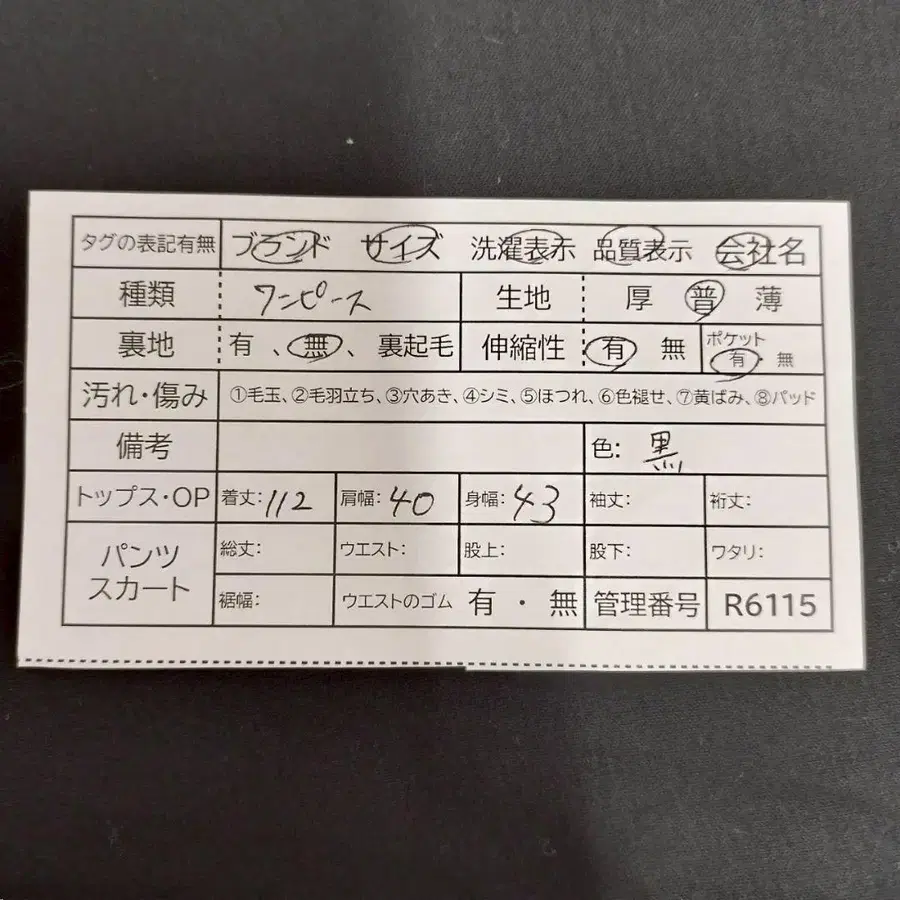 タグの表記有無 ブランド サイズ 洗濯表示 品質表示 会社名
種類 ワンピース 生地 厚 普 薄
裏地 有 、無、 裏起毛 伸縮性 有 無 ポケット 有・無
汚れ・傷み ①毛玉、②毛羽立ち、③穴あき、④シミ、⑤ほつれ、⑥色褪せ、⑦黄ばみ、⑧パッド
備考 色: 黒
トップス・OP 着丈:112 肩幅:40 身幅:43 袖丈: 裄丈:
パンツ スカート 総丈: ウエスト: 股上: 股下: ワタリ:
裾幅: ウエストのゴム 有・無 管理番号 R6115